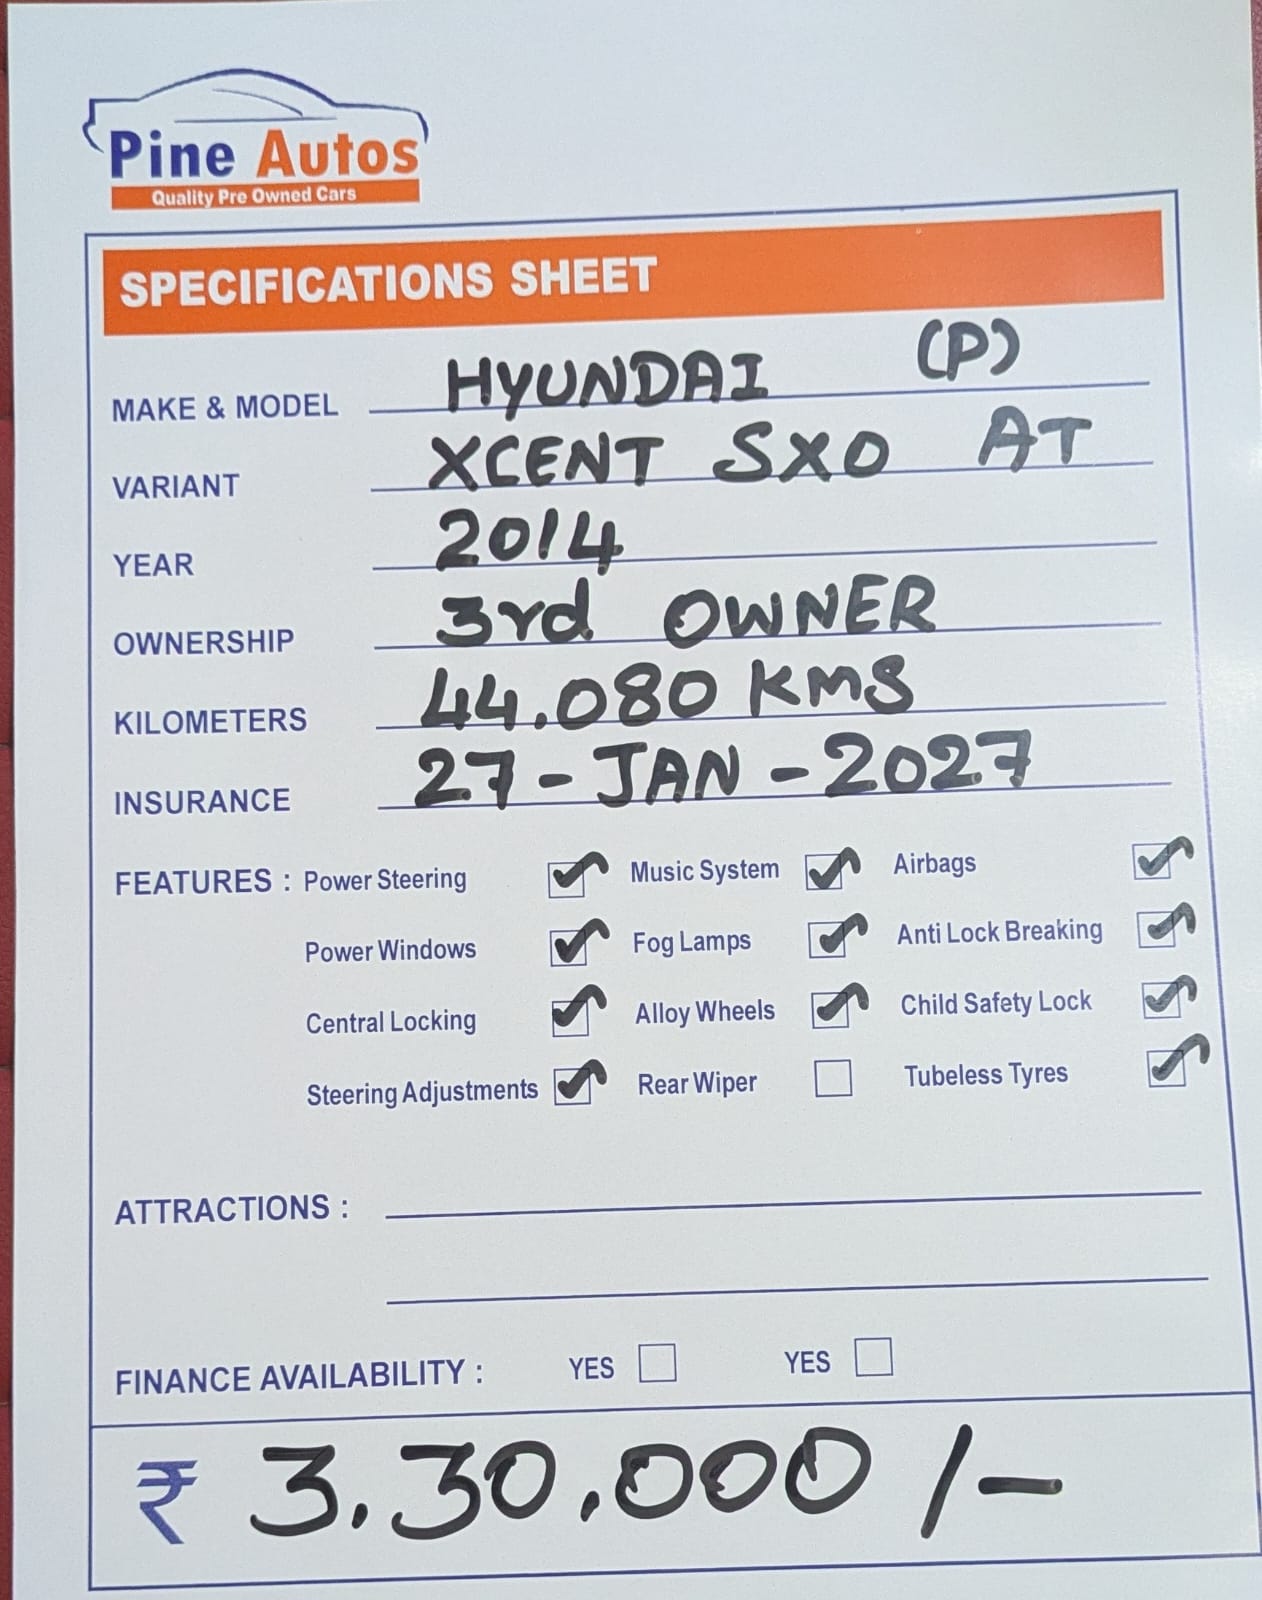 Pine Autos
Quality Pre Owned Cars
SPECIFICATIONS SHEET
MAKE & MODEL HYUNDAI (P)
VARIANT XCENT SXO AT
YEAR 2014
OWNERSHIP 3rd OWNER
KILOMETERS 44.080 KMS
INSURANCE 27-JAN-2027
FEATURES : Power Steering Music System Airbags
Power Windows Fog Lamps Anti Lock Breaking
Central Locking Alloy Wheels Child Safety Lock
Steering Adjustments Rear Wiper Tubeless Tyres
ATTRACTIONS :
FINANCE AVAILABILITY : YES YES
₹ 3,30,000/-